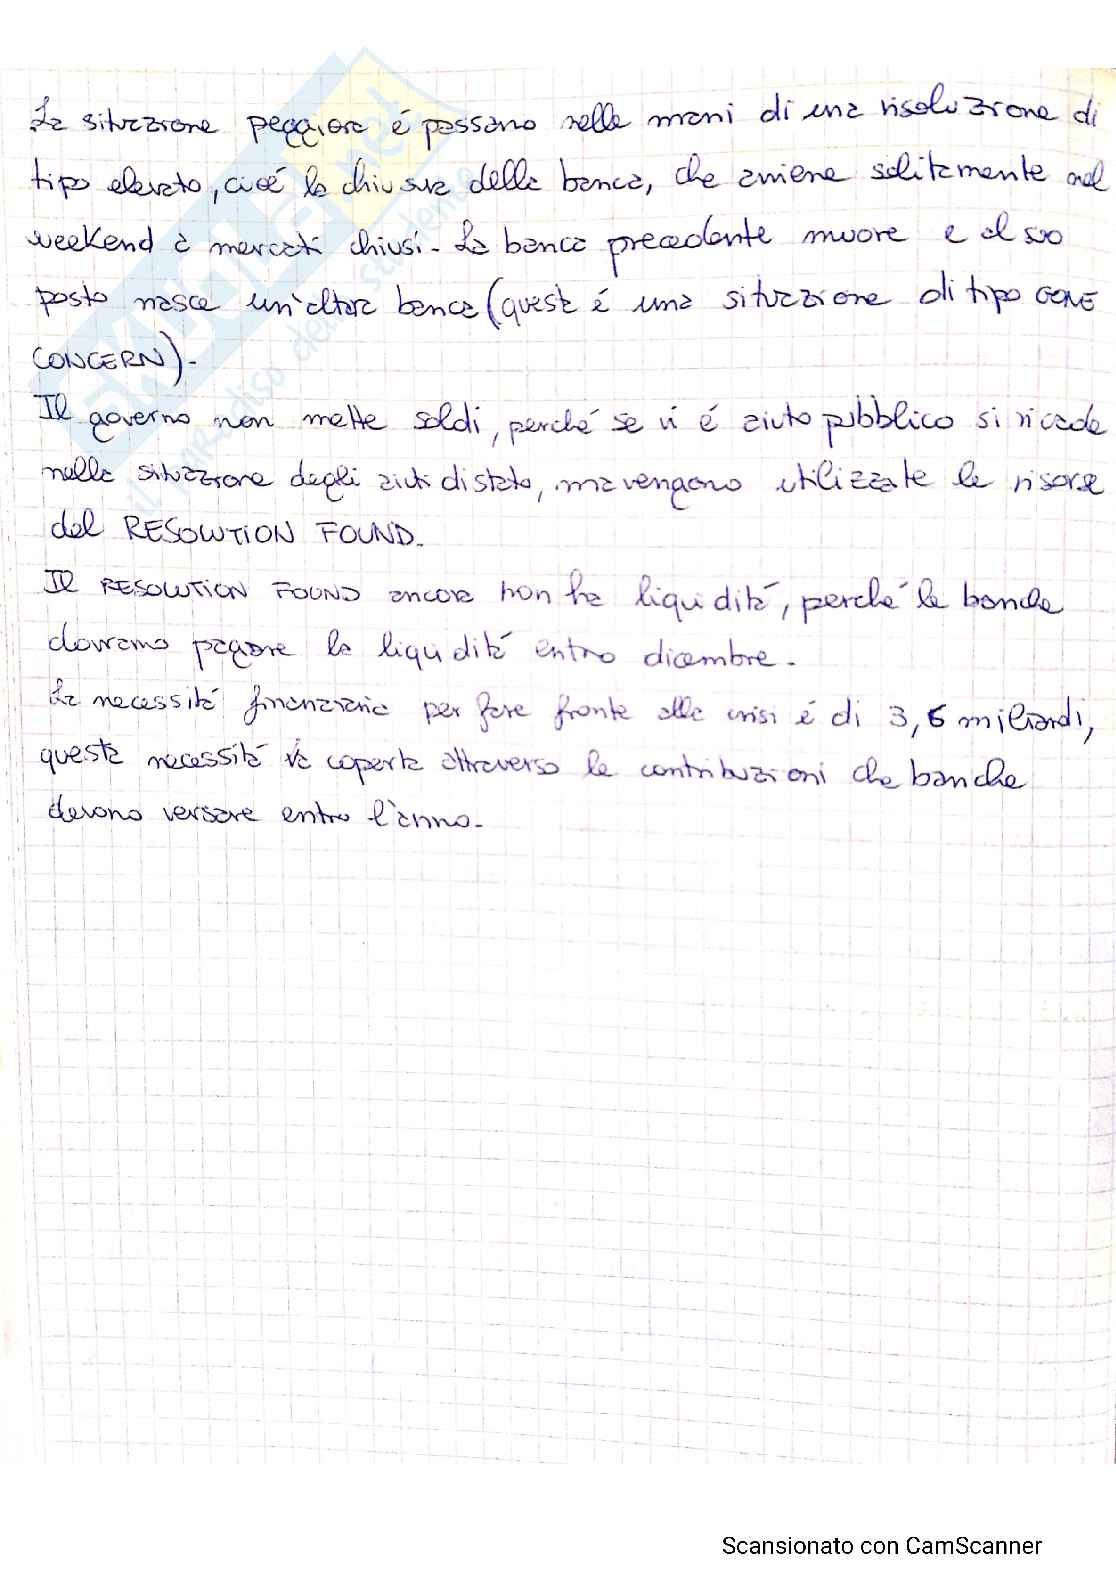 La situazione peggiora e passano nelle mani di una risoluzione di
tipo elevato, cioé la chiusura della banca, che avviene solitamente nel
weekend a mercati chiusi. La banca precedente muore e al suo
posto nasce un'altra banca (questa é una situazione di tipo GONE
CONCERN).
Il governo non mette soldi, perché se vi é aiuto pubblico si ricade
nella situazione degli aiuti di stato, ma vengono utilizzate le risorse
del RESOLUTION FOUND.
Il RESOLUTION FOUND ancora non ha liquiditá, perché le banche
dovranno pagare la liquiditá entro dicembre.
La necessitá finanziaria per fare fronte alla crisi é di 3,6 miliardi,
questa necessitá va coperta attraverso le contribuzioni che banche
devono versare entro l'anno.
skuola.net
il paradiso dello studente
Scansionato con CamScanner